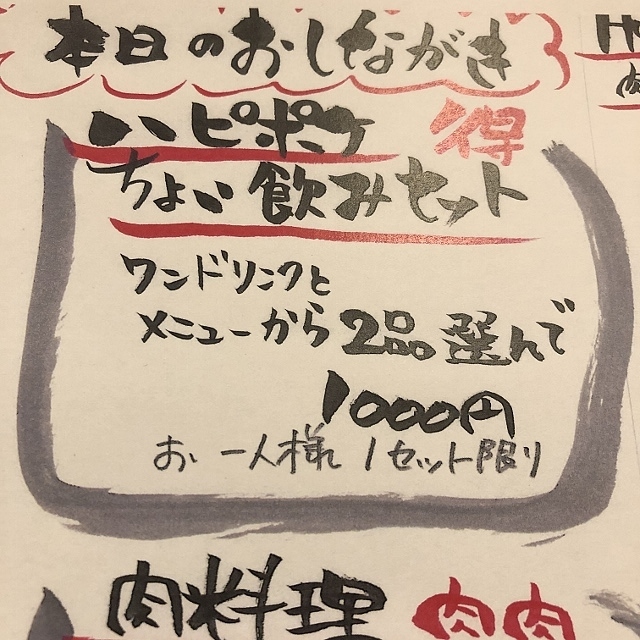 本日のおしながき
ハピポケ 得
ちょい飲みセット
ワンドリンクと
メニューから2品選んで
1000円
お一人様1セット限り
肉料理 肉肉